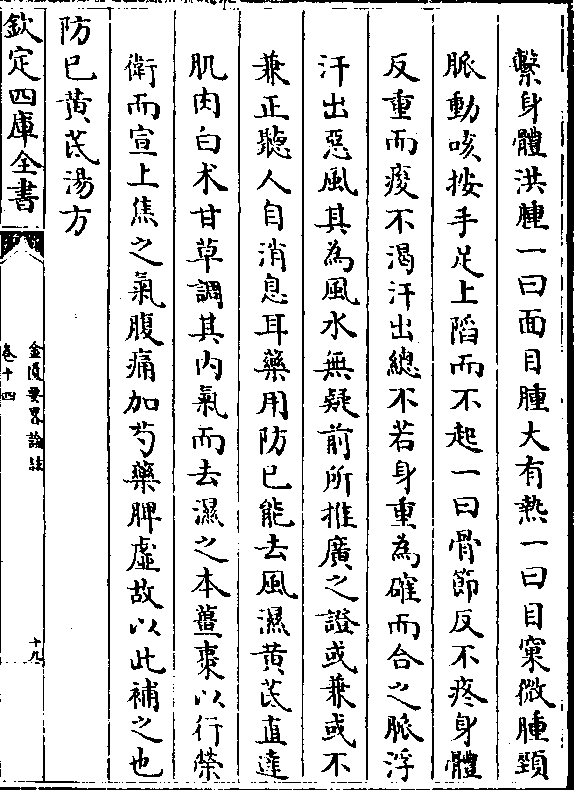 繫身體洪腫一曰面目腫大有熱一曰目窠微腫頸
脈動咳按手足上䧟而不起一曰骨節反不疼身體
反重而痠不渴汗出總不若身重為確而合之脈浮
汗出惡風其為風水無疑前所推廣之證或兼或不
兼正聽人自消息耳藥用防已能去風濕黃芪直達
肌肉白术甘草調其内氣而去濕之本薑棗以行榮
衛而宣上焦之氣腹痛加芍藥脾虛故以此補之也
防已黃芪湯方
欽定四庫全書
金匱要畧論註
卷十四
十九